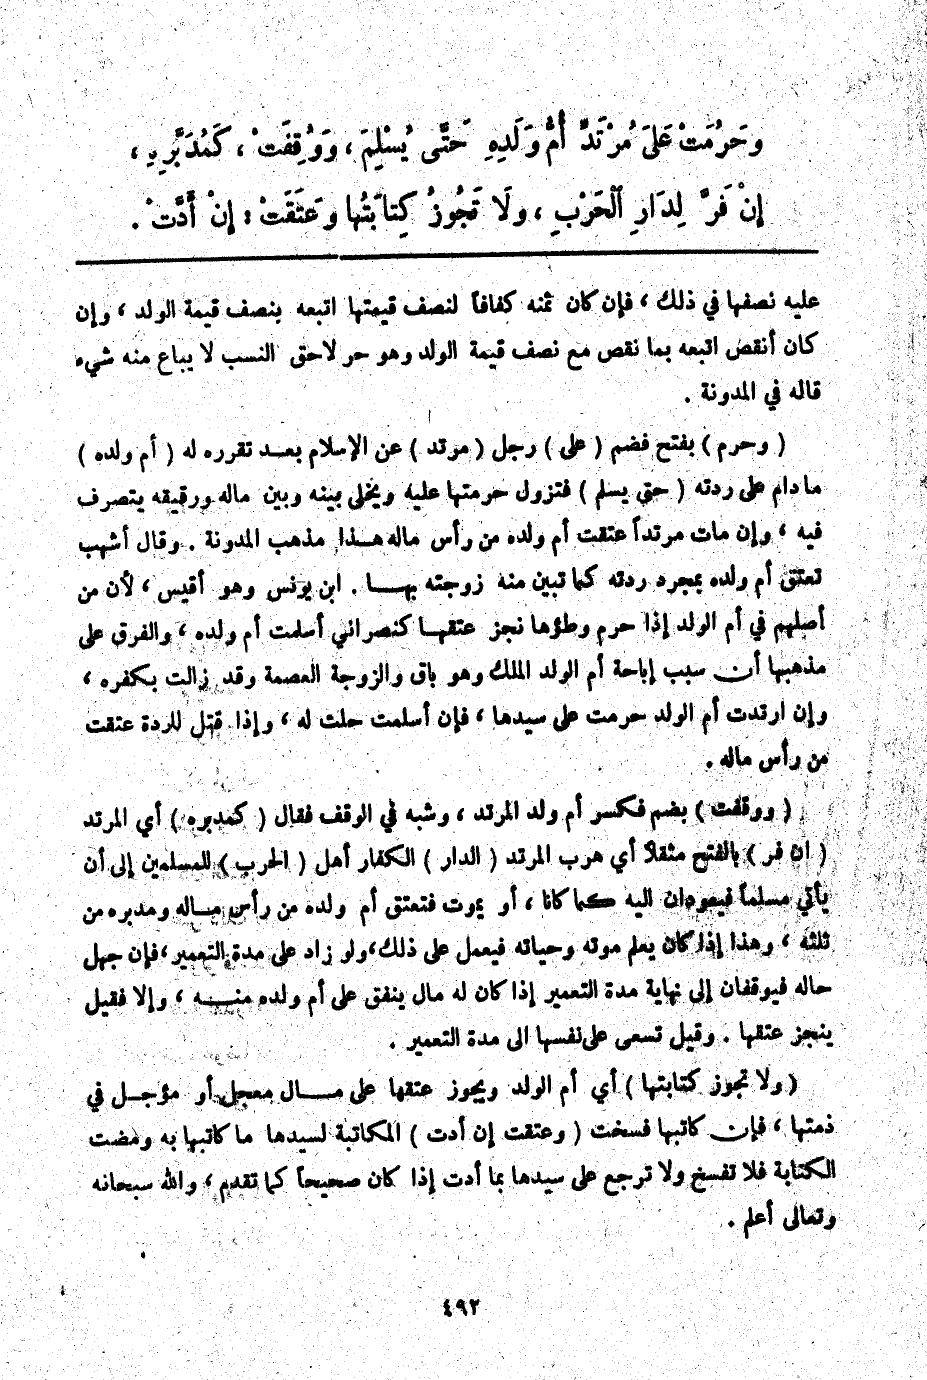 وَحَرُمَتْ عَلَى مُرْتَدٍّ أُمُّ وَلَدِهِ حَتَّى يُسْلِمَ ، وَوُقِفَتْ ، كَمُدَبَّرِهِ ،
إِنْ فَرَّ لِدَارِ ٱلْحَرْبِ ، وَلَا تَجُوزُ كِتَابَتُهَا وَعَتَقَتْ : إِنْ أَدَّتْ .
عليه نصفها في ذلك ، فإن كان ثمنه كفافاً لنصف قيمتها اتبعه بنصف قيمة الولد ، وإن
كان أنقص اتبعه بما نقص مع نصف قيمة الولد وهو حر لاحق النسب لا يباع منه شيء
قاله في المدونة .
( وحرم ) بفتح فضم ( على ) رجل ( مرتد ) عن الإسلام بعد تقرره له ( أم ولده )
ما دام على ردته ( حتى يسلم ) فتزول حرمتها عليه ويخلى بينه وبين ماله ورقيقه يتصرف
فيه ، وإن مات مرتداً عتقت أم ولده من رأس ماله هذا مذهب المدونة . وقال أشهب
تعتق أم ولده بمجرد ردته كما تبين منه زوجته بها . ابن يونس وهو أقيس ، لأن من
أصلهم في أم الولد إذا حرم وطؤها نجز عتقها كنصراني أسلمت أم ولده ، والفرق على
مذهبها أن سبب إباحة أم الولد الملك وهو باق والزوجة العصمة وقد زالت بكفره ،
وإن ارتدت أم الولد حرمت على سيدها ، فإن أسلمت حلت له ، وإذا قتل للردة عتقت
من رأس ماله .
( ووقفت ) بضم فكسر أم ولد المرتد ، وشبه في الوقف فقال ( كمدبره ) أي المرتد
( ان فر ) بالفتح مثقلاً أي هرب المرتد ( الدار ) الكفار أهل ( الحرب ) للمسلمين إلى أن
يأتي مسلماً فيعودان اليه كما كانا ، أو يموت فتعتق أم ولده من رأس ماله ومدبره من
ثلثه ، وهذا إذا كان يعلم موته وحياته فيعمل على ذلك،ولو زاد على مدة التعمير،فإن جهل
حاله فيوقفان إلى نهاية مدة التعمير إذا كان له مال ينفق على أم ولده منه ، وإلا فقيل
ينجز عتقها . وقيل تسعى على نفسها الى مدة التعمير .
( ولا تجوز كتابتها ) أي أم الولد ويجوز عتقها على مال معجل أو مؤجل في
ذمتها ، فإن كاتبها فسخت ( وعتقت إن أدت ) المكاتبة لسيدها ما كاتبها به ومضت
الكتابة فلا تفسخ ولا ترجع على سيدها بما أدت إذا كان صحيحاً كما تقدم ، والله سبحانه
وتعالى أعلم .
٤٩٢